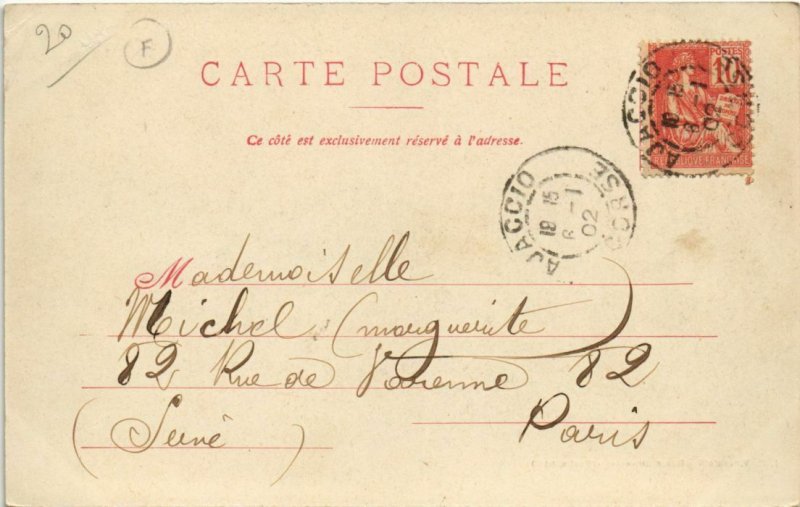 20
F
CARTE POSTALE
Ce côté est exclusivement réservé à l'adresse.
POSTES
10
REPUBLIQUE FRANÇAISE
AJACCIO
AJACCIO CORSE
18 15
8 -1
02
Mademoiselle
Michel (Marguerite)
82 Rue de Varenne 82
(Seine) Paris